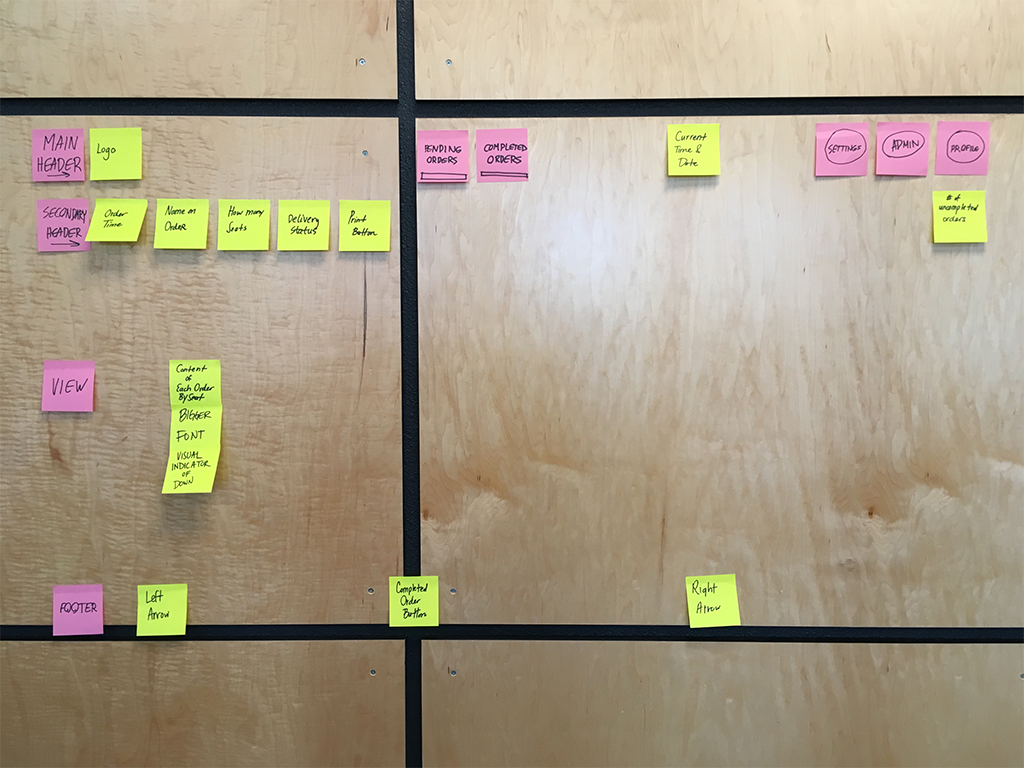 MAIN
HEADER
Logo
PENDING
ORDERS
COMPLETED
ORDERS
Current
Time &
Date
SETTINGS
ADMIN
PROFILE
SECONDARY
HEADER
Order
Time
Name on
Order
How many
Seats
Delivery
Status
Print
Button
# of
uncompleted
orders
VIEW
Content
of
Each Order
By Seat
BIGGER
FONT
VISUAL
INDICATOR
OF
DOWN
FOOTER
Left
Arrow
Completed
Order
Button
Right
Arrow